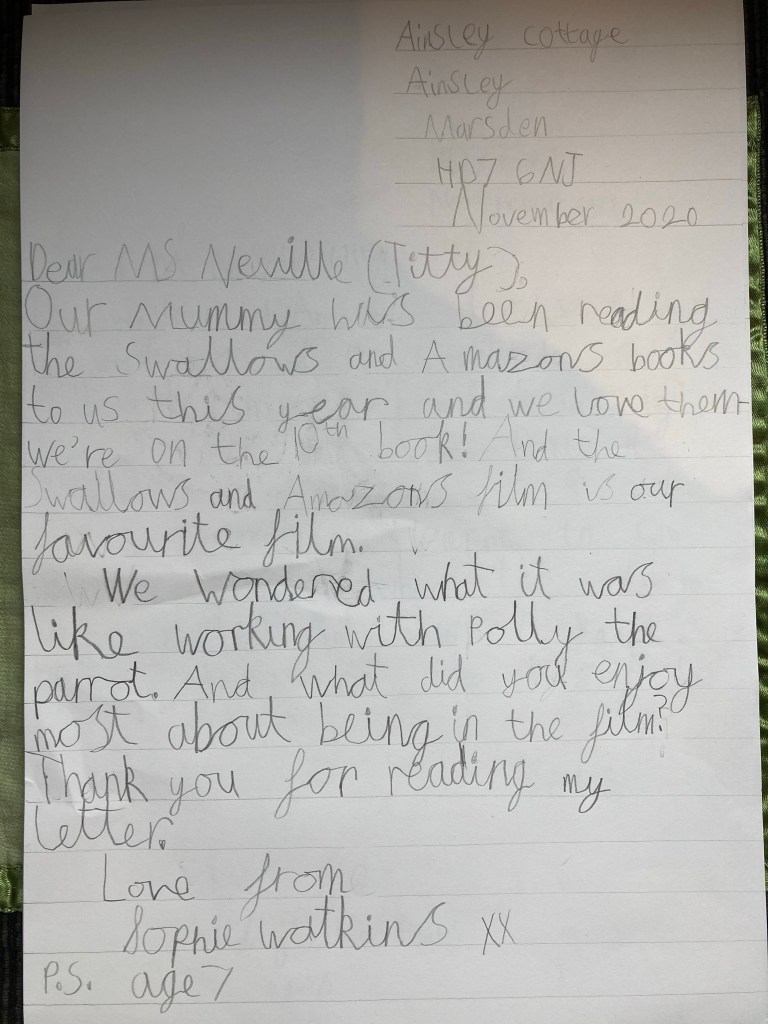 Ainsley cottage
Ainsley
Marsden
HD7 6NJ
November 2020
Dear MS Neville (Titty),
Our Mummy has been reading
the Swallows and Amazons books
to us this year and we love them
we're on the 10th book! And the
Swallows and Amazons film is our
favourite film.
We wondered what it was
like working with Polly the
parrot. And what did you enjoy
most about being in the film?
Thank you for reading my
letter.
Love from
Sophie Watkins xx
P.S. age 7